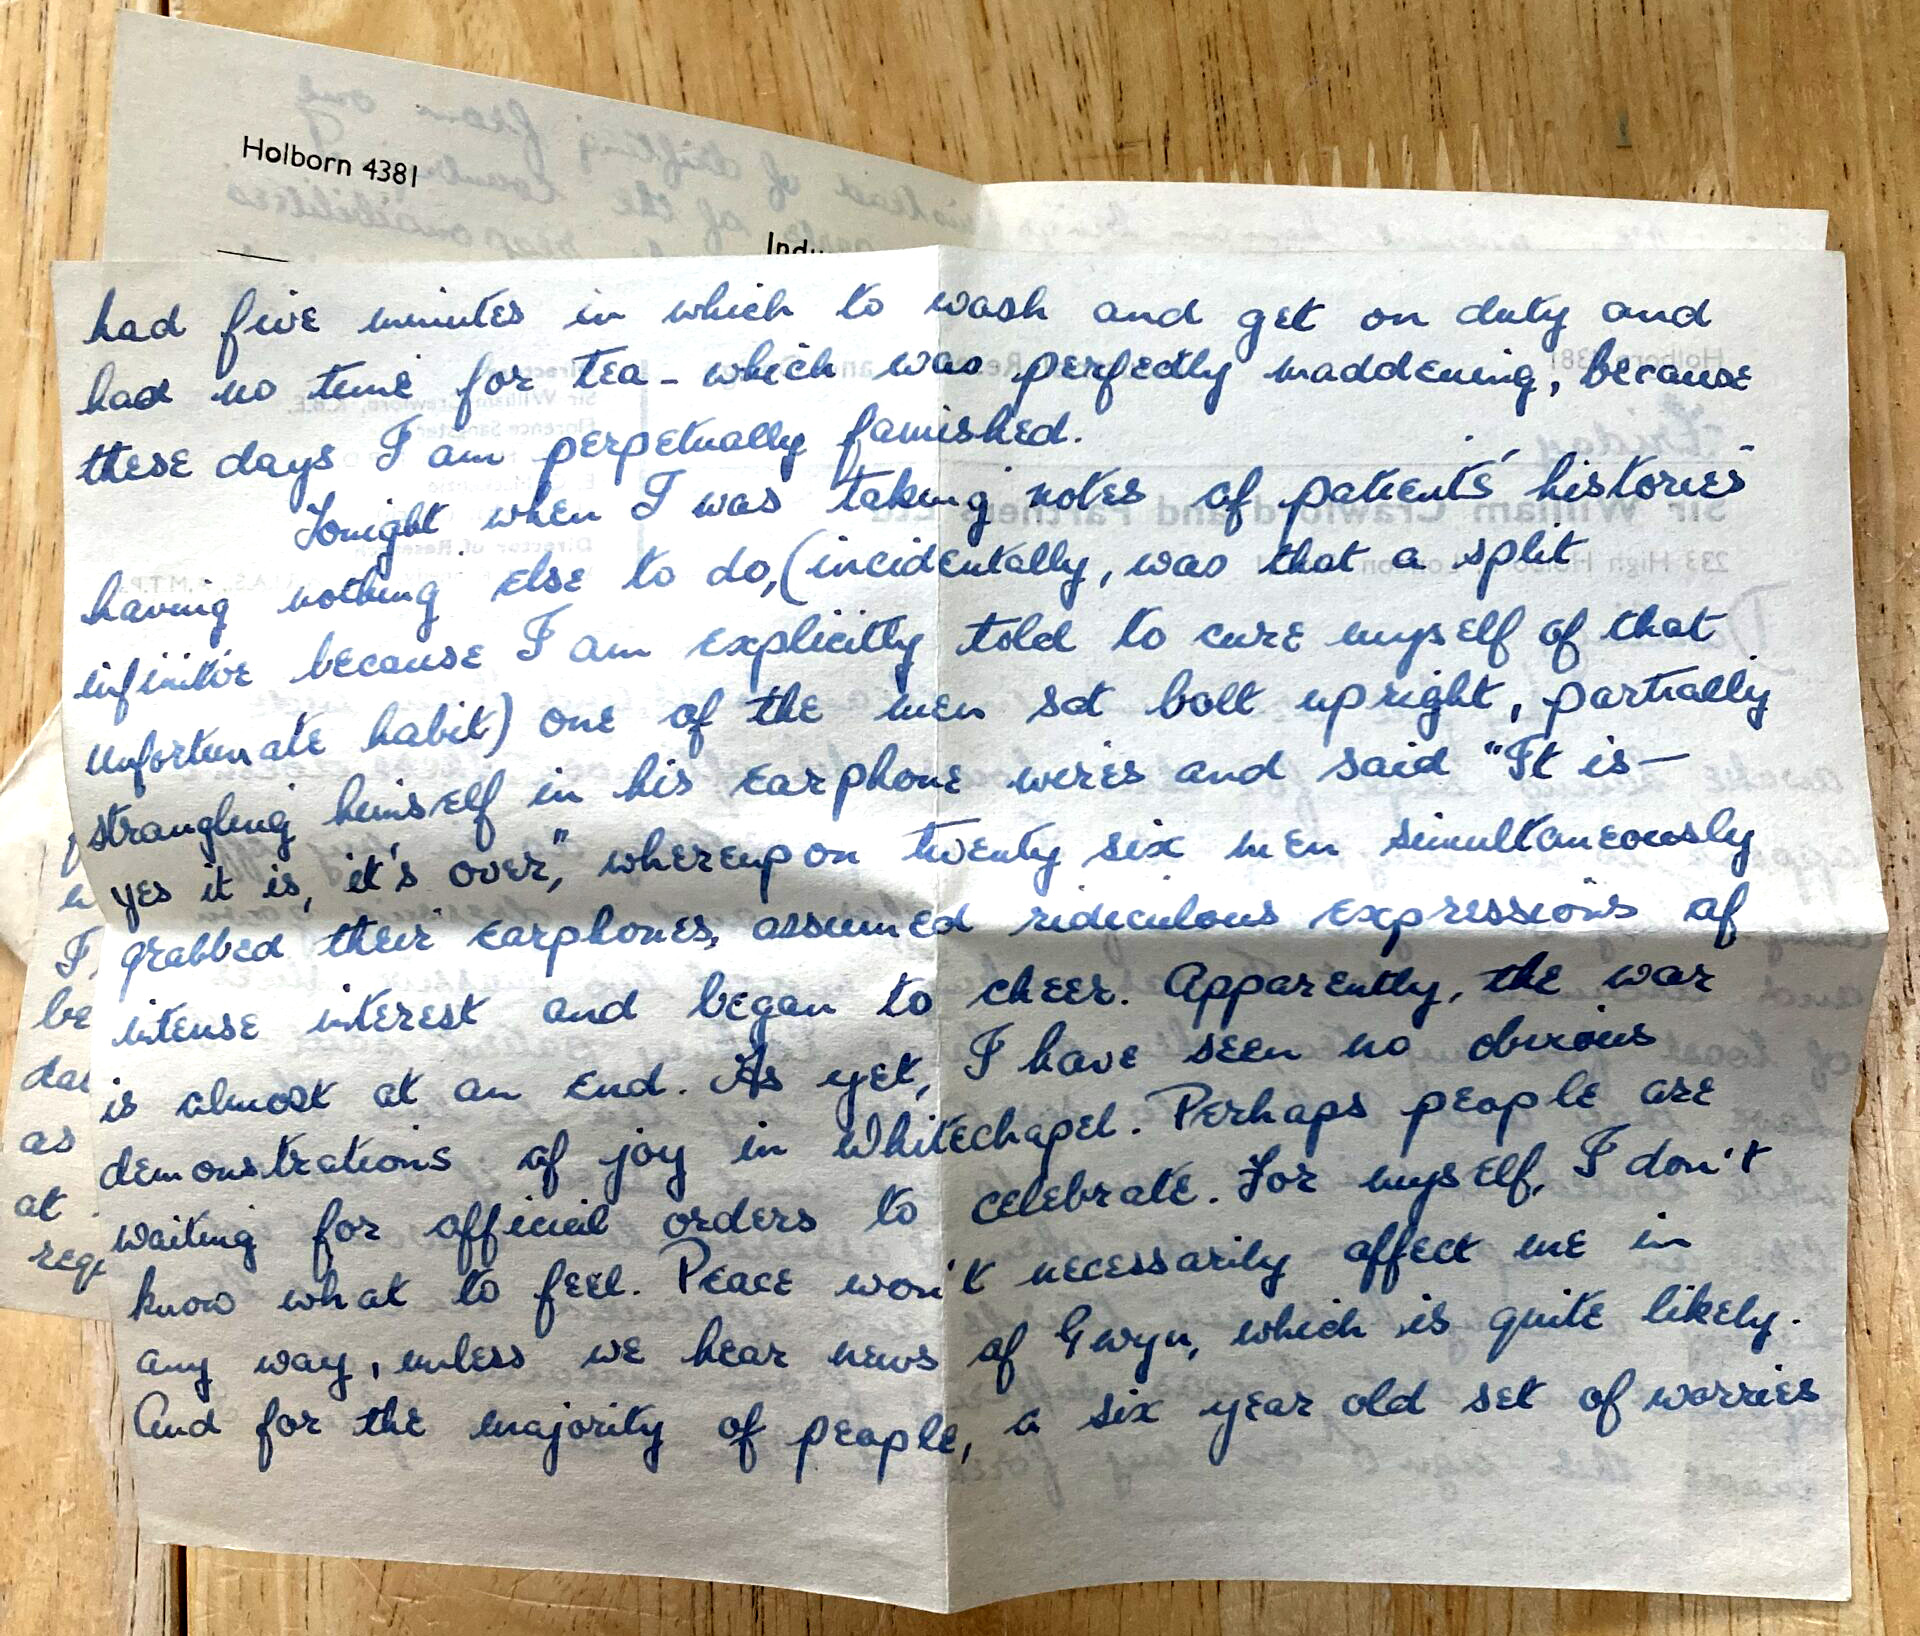 Holborn 4381
had five minutes in which to wash and get on duty and
had no time for tea - which was perfectly maddening, because
these days I am perpetually famished.
Tonight when I was taking notes of patients' histories -
having nothing else to do, (incidentally, was that a split
infinitive because I am explicitly told to cure myself of that
unfortunate habit) one of the men sat bolt upright, partially
strangling himself in his earphone wires and said "It is —
yes it is, it's over," whereupon twenty six men simultaneously
grabbed their earphones, assumed ridiculous expressions of
intense interest and began to cheer. Apparently, the war
is almost at an end. As yet, I have seen no obvious
demonstrations of joy in Whitechapel. Perhaps people are
waiting for official orders to celebrate. For myself, I don't
know what to feel. Peace won't necessarily affect me in
any way, unless we hear news of Gwyn, which is quite likely.
And for the majority of people, a six year old set of worries
I
be
as
at